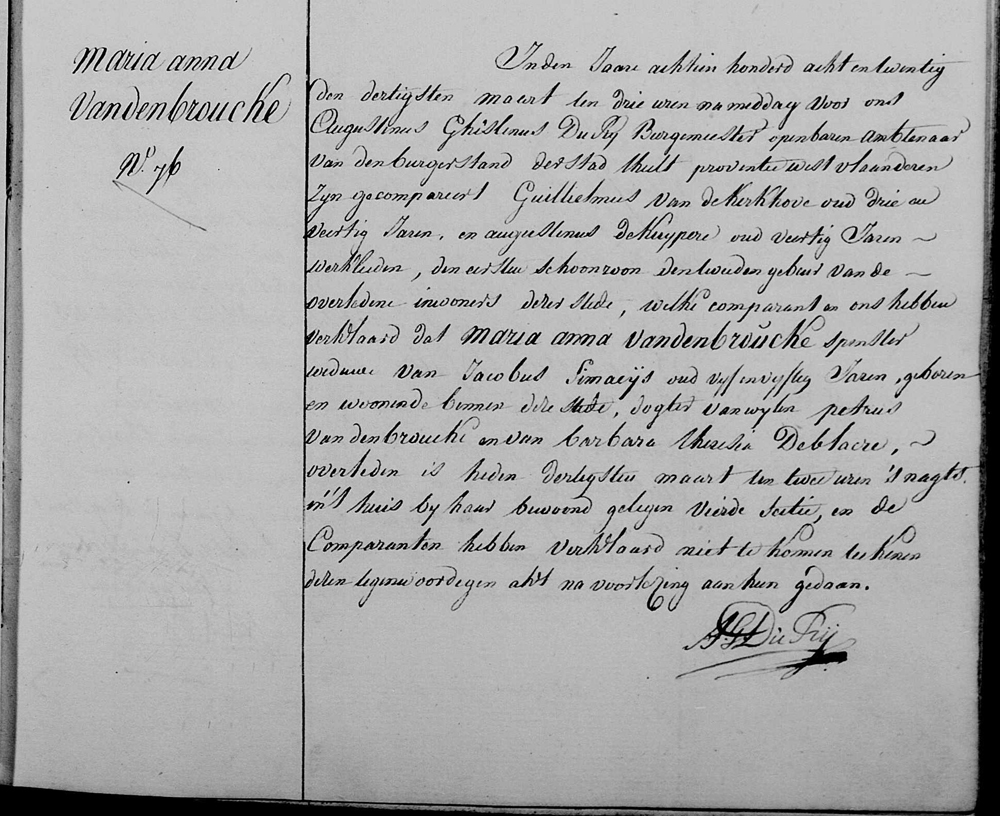 Maria anna
Vandenbroucke
N.º 76
In den Jaare achtien honderd acht en twentig
den dertigsten maert ten drie uren namiddag voor ons
Augustinus Ghislenus Du Fij Burgemeester openbaren ambtenaar
van den burgerstand der stad thielt provintie west vlaanderen
zyn gecompareert Guillielmus van de Kerkhove oud drie en
veertig Jaren, en augustinus DeKuypere oud veertig Jaren ~
werklieden, den eersten schoonzoon den tweeden gebuer van de ~
overledene inwoners dezer stede, welke comparanten ons hebben
verklaard dat Maria anna vandenbroucke spenster
weduwe van Jacobus Simaeijs oud vyf en vyfteg Jaren, geboren
en woonende binnen deze stede, dogter van wylen petrus
Vandenbroucke en van barbara theresia Deblaere, ~
overleden is heden dertigsten maart ten twee uren 's nagts.
in't huis by haar bewoond gelegen vierde sectie, en de
Comparanten hebben verklaard niet te konnen teekenen
dezen tegenwoordegen akt na voorlezing aan hun gedaan.